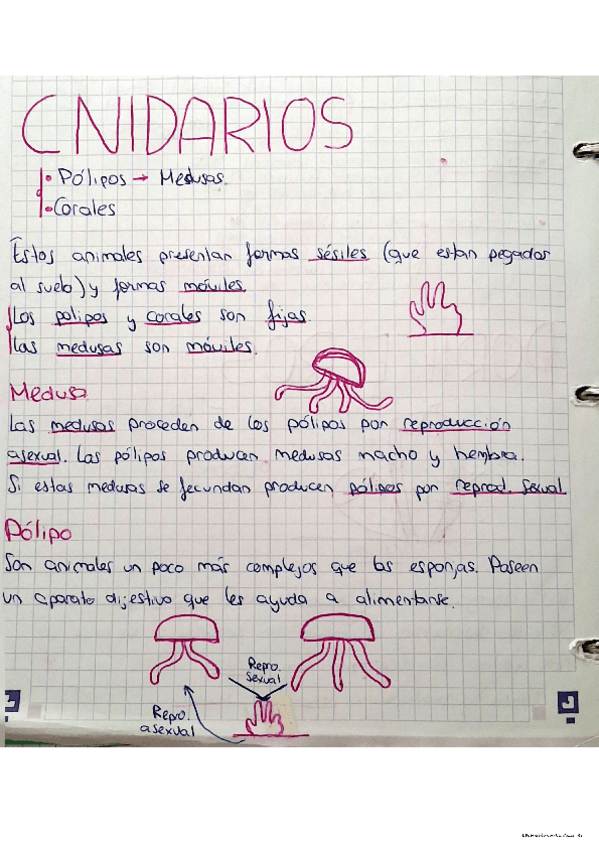 CNIDARIOS
• Pólipos → Medusas.
• Corales
Estos animales presentan formas sésiles (que estan pegados
al suelo) y formas móviles
Los polipos y corales son fijas.
Las medusas son móviles.
Medusa
Las medusas proceden de los pólipos por reproducción
asexual. Las pólipos producen medusas macho y hembra.
Si estas medusas se fecundan producen pólipos por reprod. sexual
Pólipo
Son animales un poco más complejos que las esponjas. Poseen
un aparato dijestivo que les ayuda a alimentarse.
Repro.
sexual
Repro.
asexual